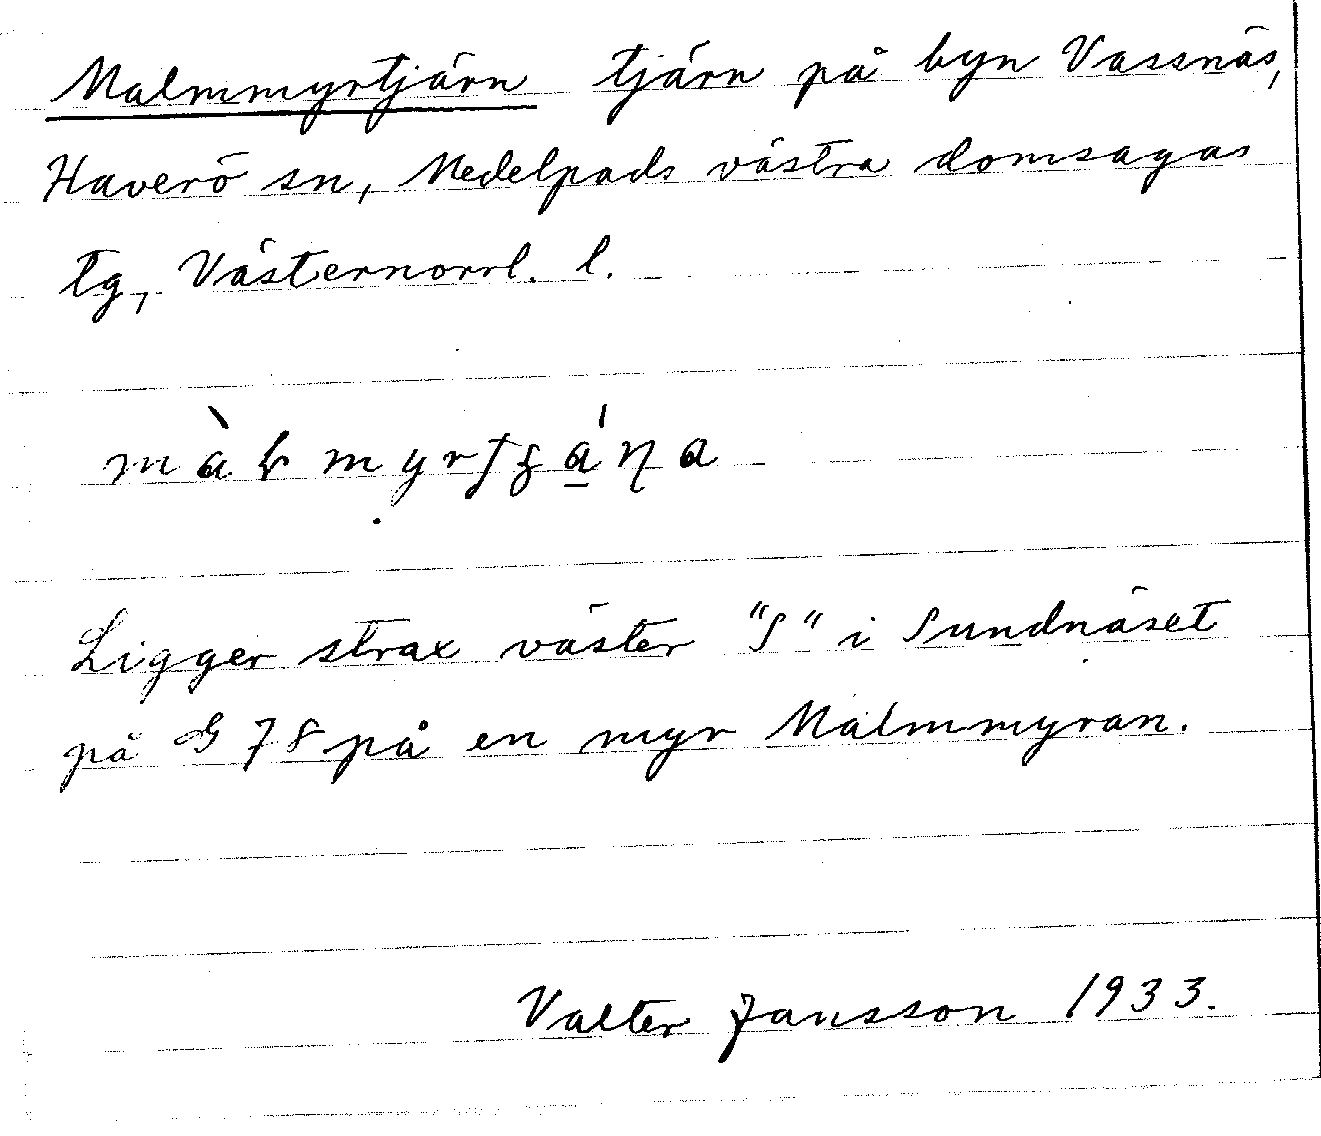 Malmmyrtjärn tjärn på byn Vassnäs,
Haverö sn, Medelpads västra domsagas
tg, Västernorrl. l.
Ligger strax väster "S" i Sundnäset
på G 78 på en myr Malmmyran.
Valter Jansson 1933.